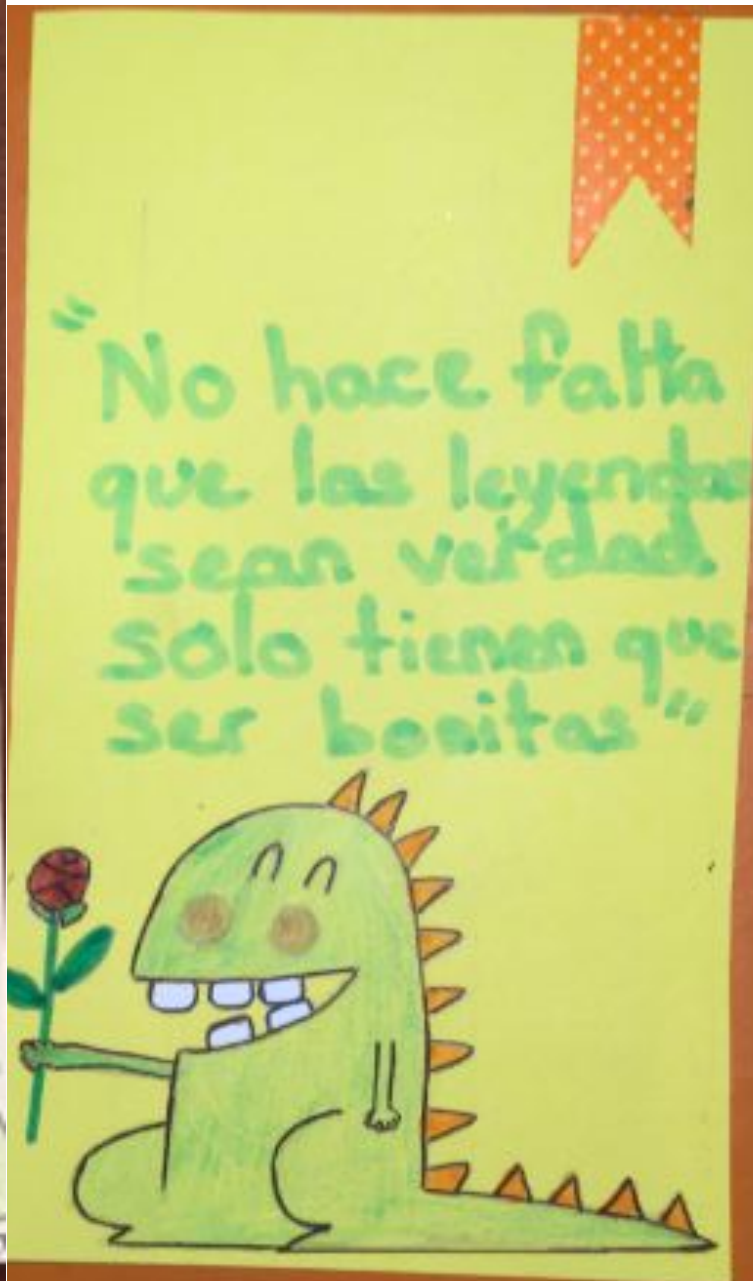 "No hace falta
que las leyendas
sean verdad
solo tienen que
ser bonitas"